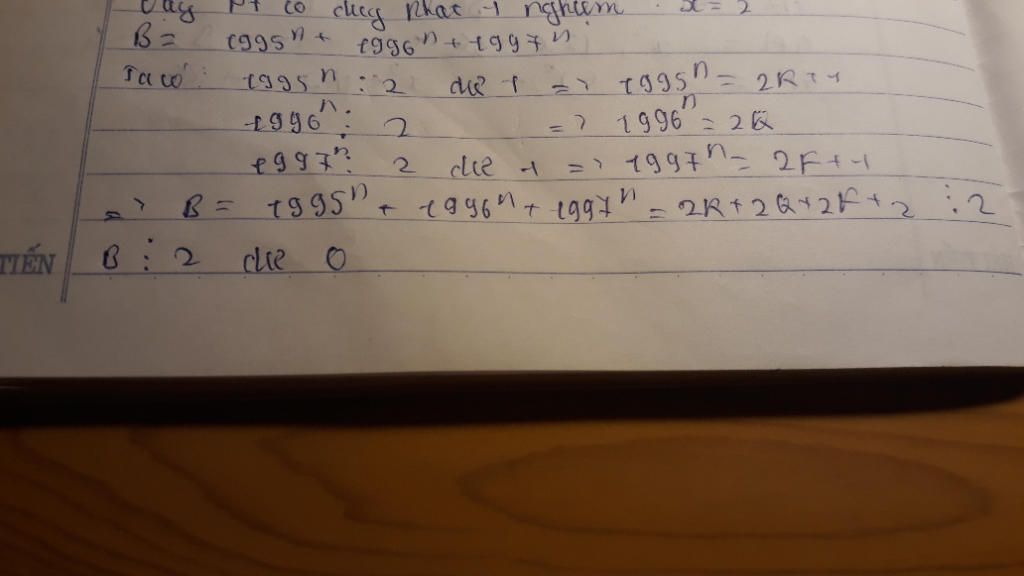 Vậy PT có duy nhất 1 nghiệm x = 2
B = 1995ⁿ + 1996ⁿ + 1997ⁿ
Ta có: 1995ⁿ : 2 dư 1 => 1995ⁿ = 2K + 1
1996ⁿ ⋮ 2 => 1996ⁿ = 2Q
1997ⁿ : 2 dư 1 => 1997ⁿ = 2F + 1
=> B = 1995ⁿ + 1996ⁿ + 1997ⁿ = 2K + 2Q + 2F + 2 ⋮ 2
TIẾN B ⋮ 2 dư 0